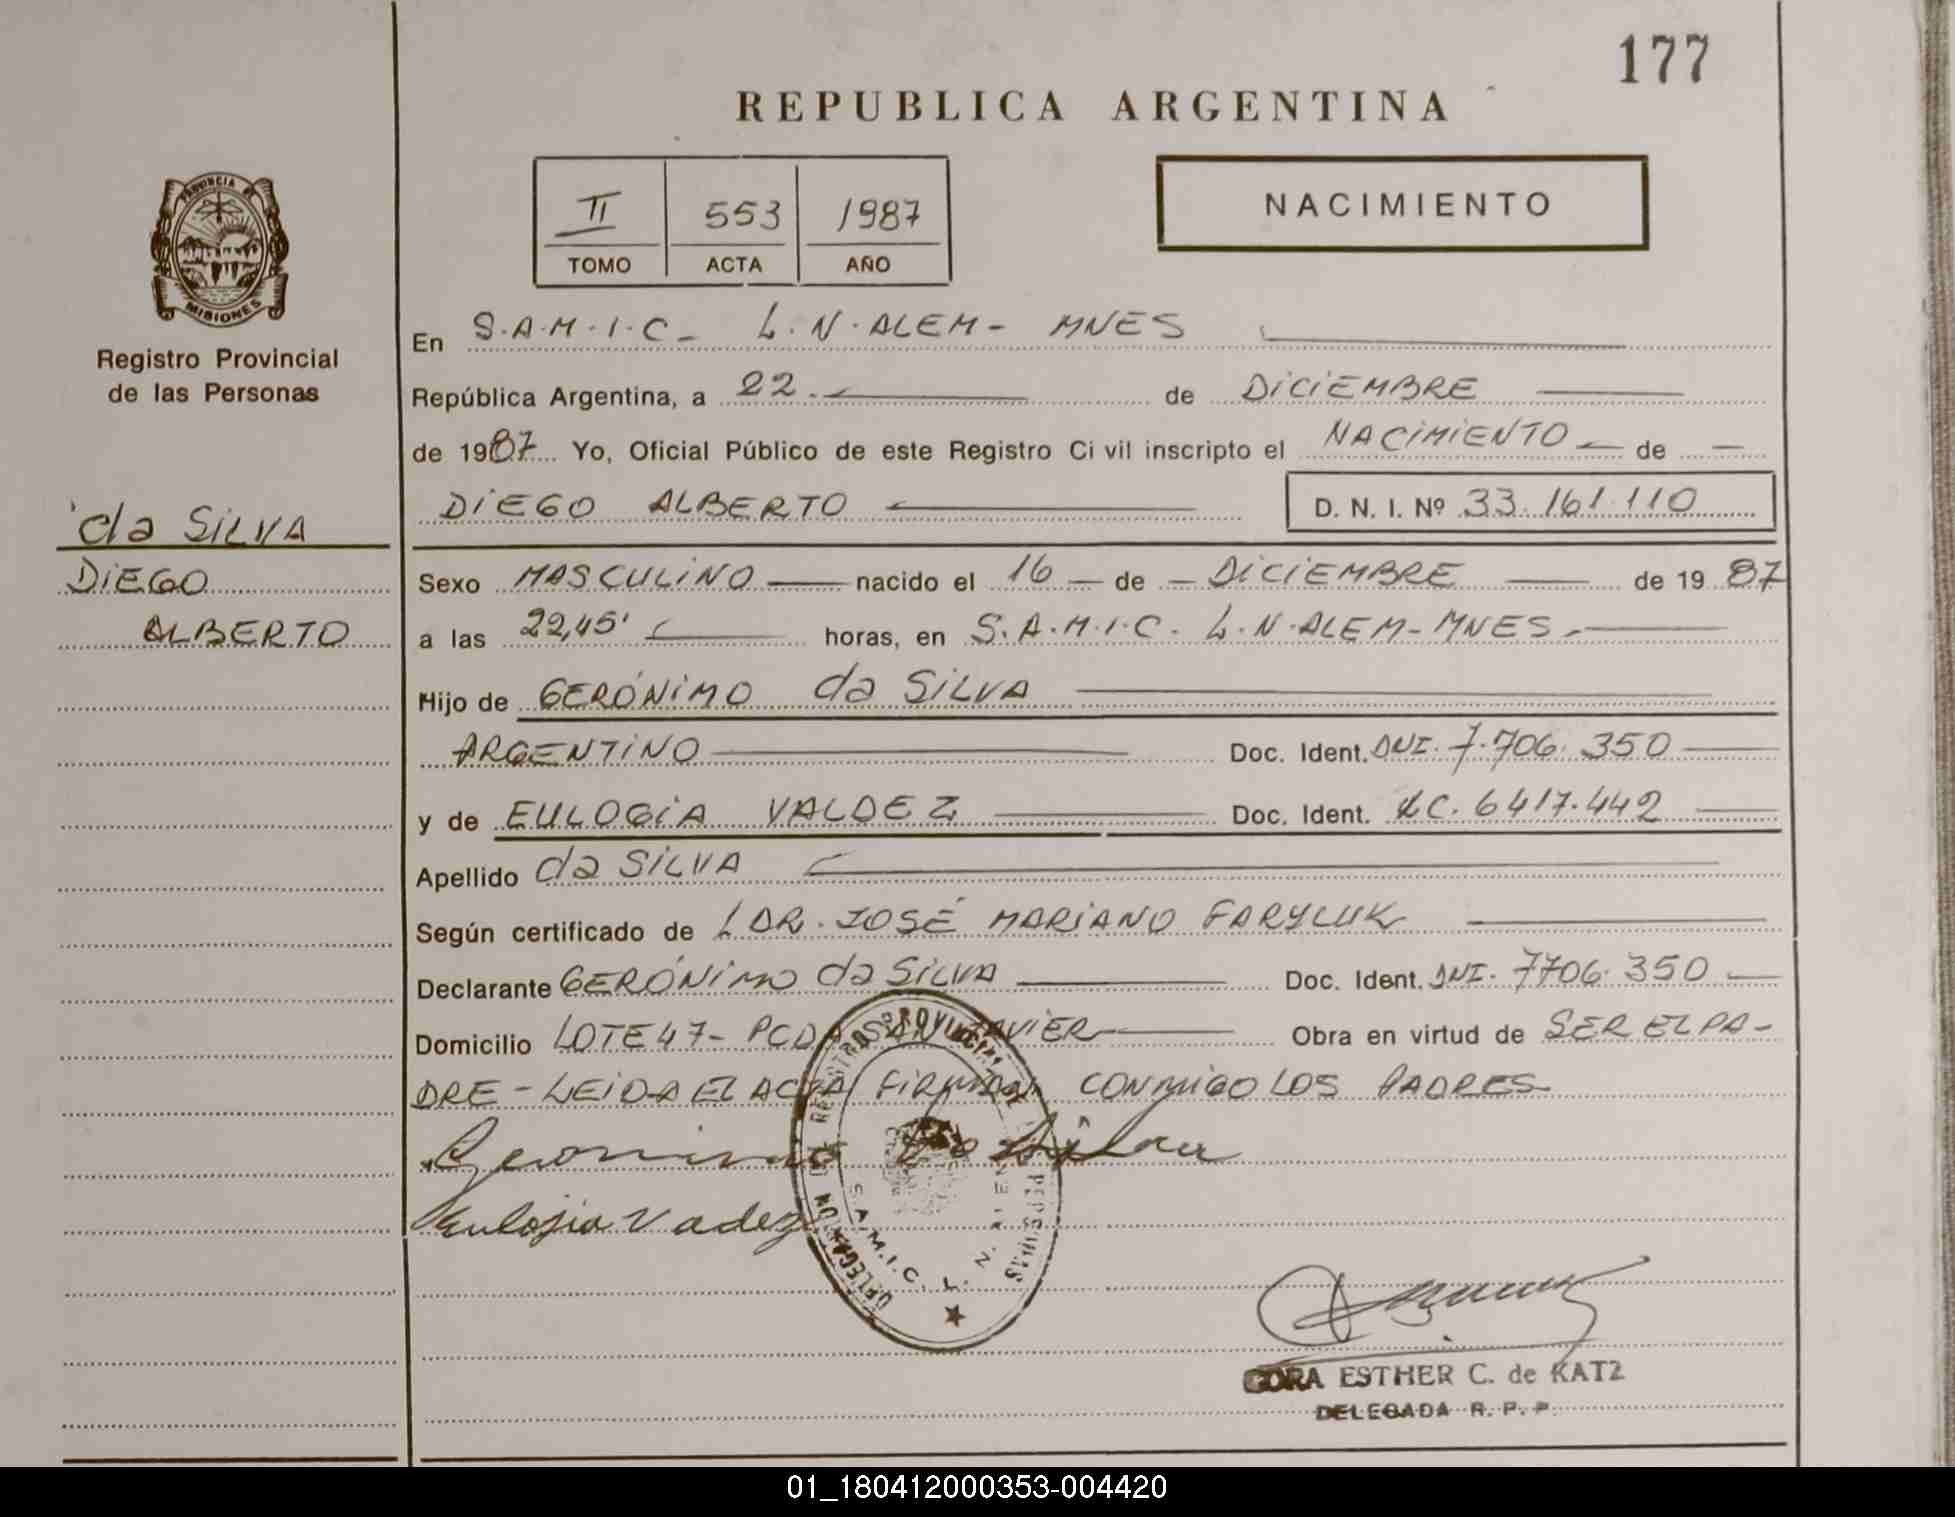 177
REPUBLICA ARGENTINA
II 553 1987
TOMO ACTA AÑO
NACIMIENTO
PROVINCIA DE
MISIONES
Registro Provincial
de las Personas
da SILVA
DIEGO
ALBERTO
En S.A.M.I.C- L.N.ALEM- MNES
República Argentina, a 22. de DICIEMBRE
de 1987 Yo, Oficial Público de este Registro Ci vil inscripto el NACIMIENTO de
DIEGO ALBERTO D. N. I. Nº 33.161.110
Sexo MASCULINO nacido el 16 de DICIEMBRE de 19 87
a las 22,45' horas, en S.A.M.I.C. L.N.ALEM-MNES.
Hijo de GERÓNIMO da SILVA
ARGENTINO Doc. Ident. DNI. 7.706.350
y de EULOGIA VALDEZ Doc. Ident. LC. 6417.442
Apellido da SILVA
Según certificado de DR. JOSÉ MARIANO FARYLUK
Declarante GERÓNIMO da SILVA Doc. Ident. DNI. 7706.350
Domicilio LOTE 47- PCDA SAN JAVIER Obra en virtud de SER EL PA-
DRE - LEIDA EL ACTA FIRMAN CONMIGO LOS PADRES
Geronimo da Silva
Eulojia Vadez
DELEGACION REGISTRO PROVINCIAL DE PERSONAS
S.A.M.I.C. L. N. ALEM
CORA ESTHER C. de KATZ
DELEGADA R. P. P.
01_180412000353-004420